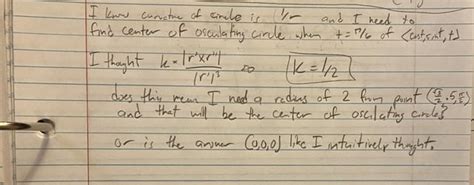 I know curvature of circle is 1/r and I need to
find center of osculating circle when t = π/6 of <cost, sint, t>
I thought k = |r'×r''| / |r'|³ so K = 1/2
does this mean I need a radius of 2 from point (√3/2, .5,
and that will be the center of osculating circle?
or is the answer (0,0,0) like I intuitively thought.